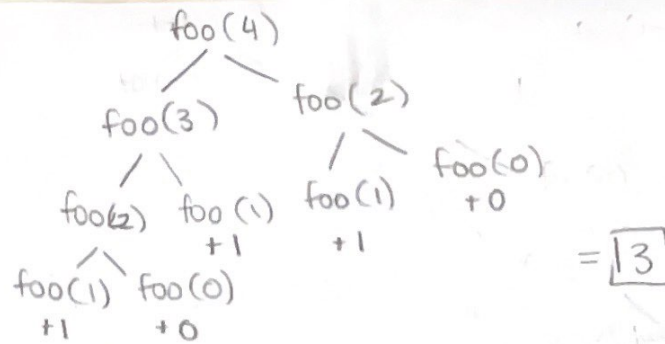 foo(4)
foo(3) foo(2)
foo(2) foo(1) foo(1) foo(0)
+1 +1 +0
foo(1) foo(0) = 3
+1 +0